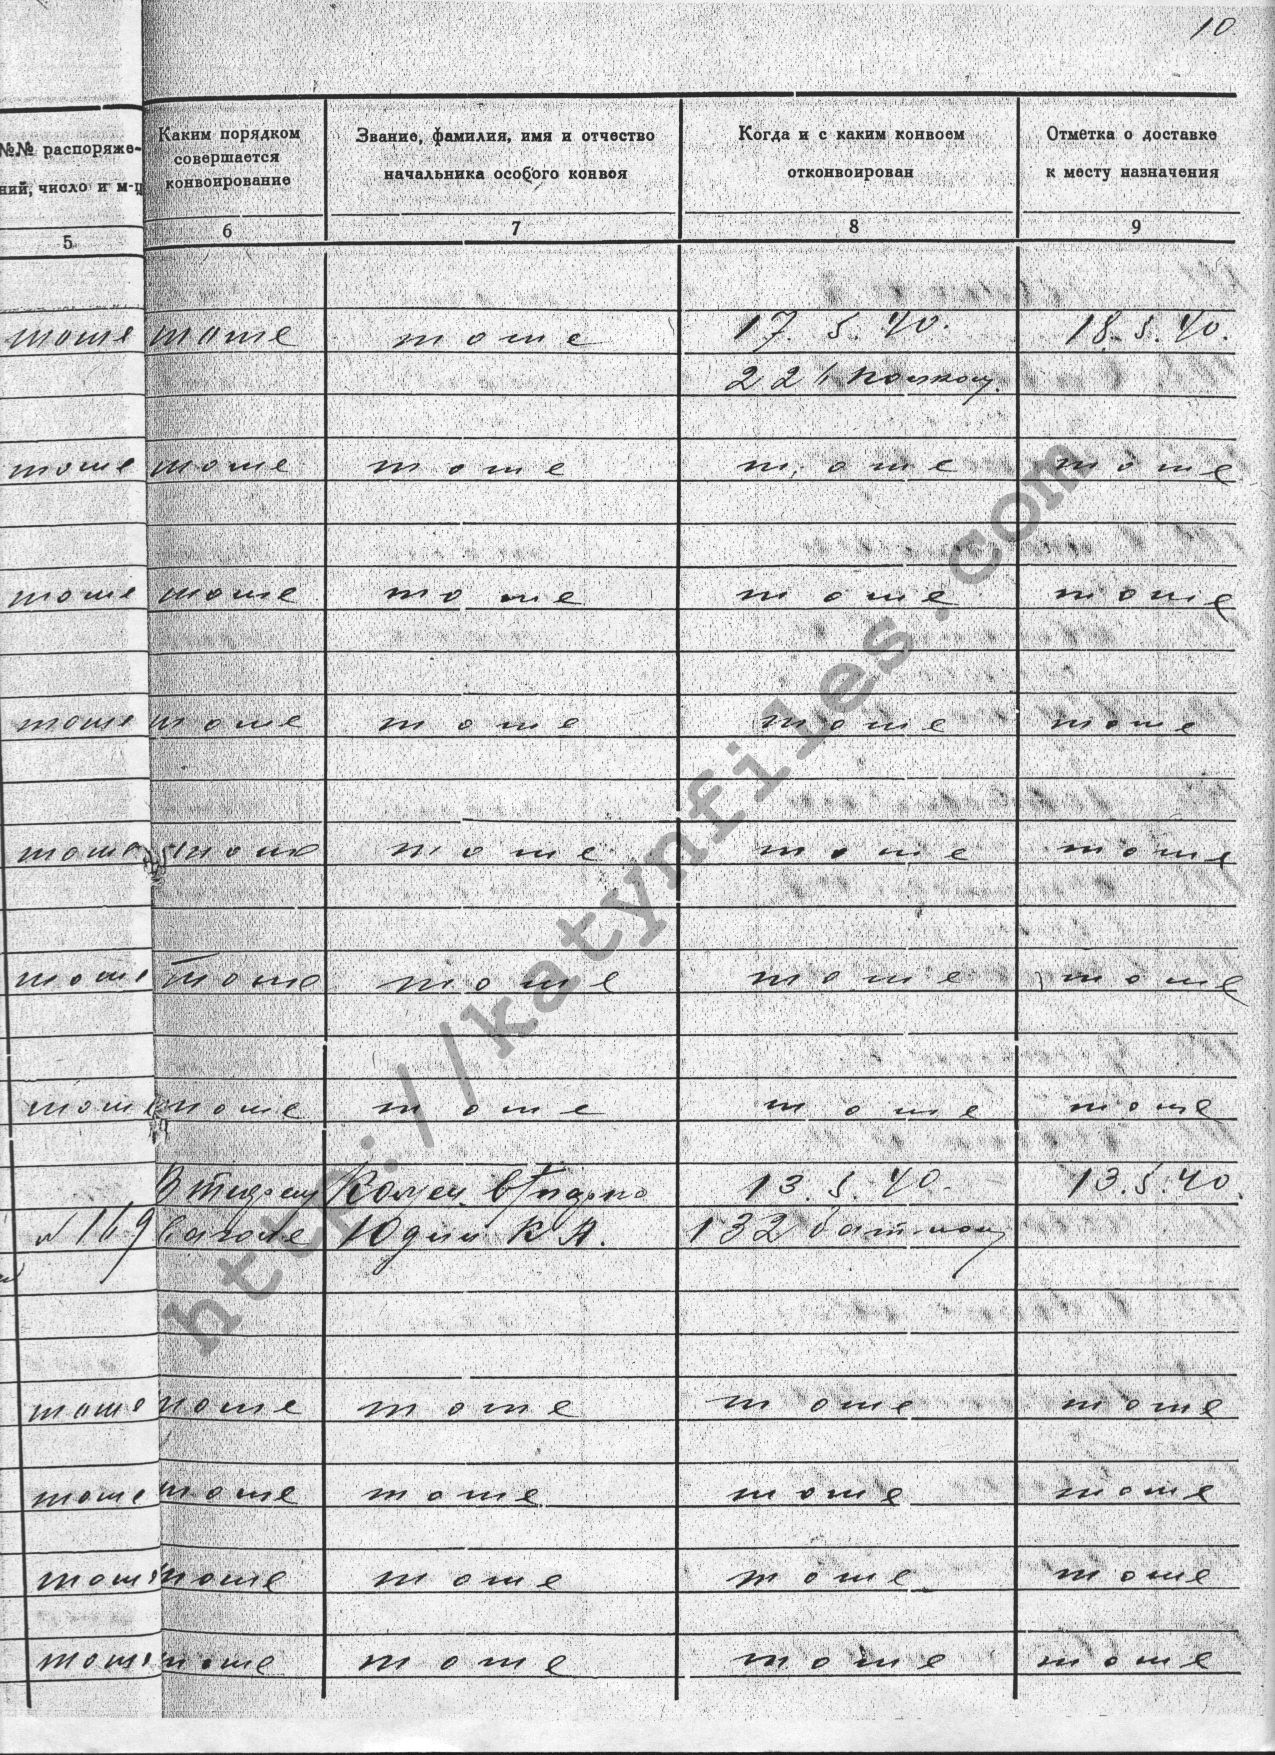 10
№№ распоряже-
ний, число и м-ц
Каким порядком
совершается
конвоирование
Звание, фамилия, имя и отчество
начальника особого конвоя
Когда и с каким конвоем
отконвоирован
Отметка о доставке
к месту назначения
5 6 7 8 9
тоже тоже тоже 17. 5. 40. 18. 5. 40.
221 полком.
тоже тоже тоже тоже тоже
тоже тоже тоже тоже тоже
тоже тоже тоже тоже тоже
тоже тоже тоже тоже тоже
тоже тоже тоже тоже тоже
тоже тоже тоже тоже тоже
В 13. 5. 40. 13. 5. 40.
вагоне 132
тоже тоже тоже тоже тоже
тоже тоже тоже тоже тоже
тоже тоже тоже тоже тоже
тоже тоже тоже тоже тоже
http://katynfiles.com